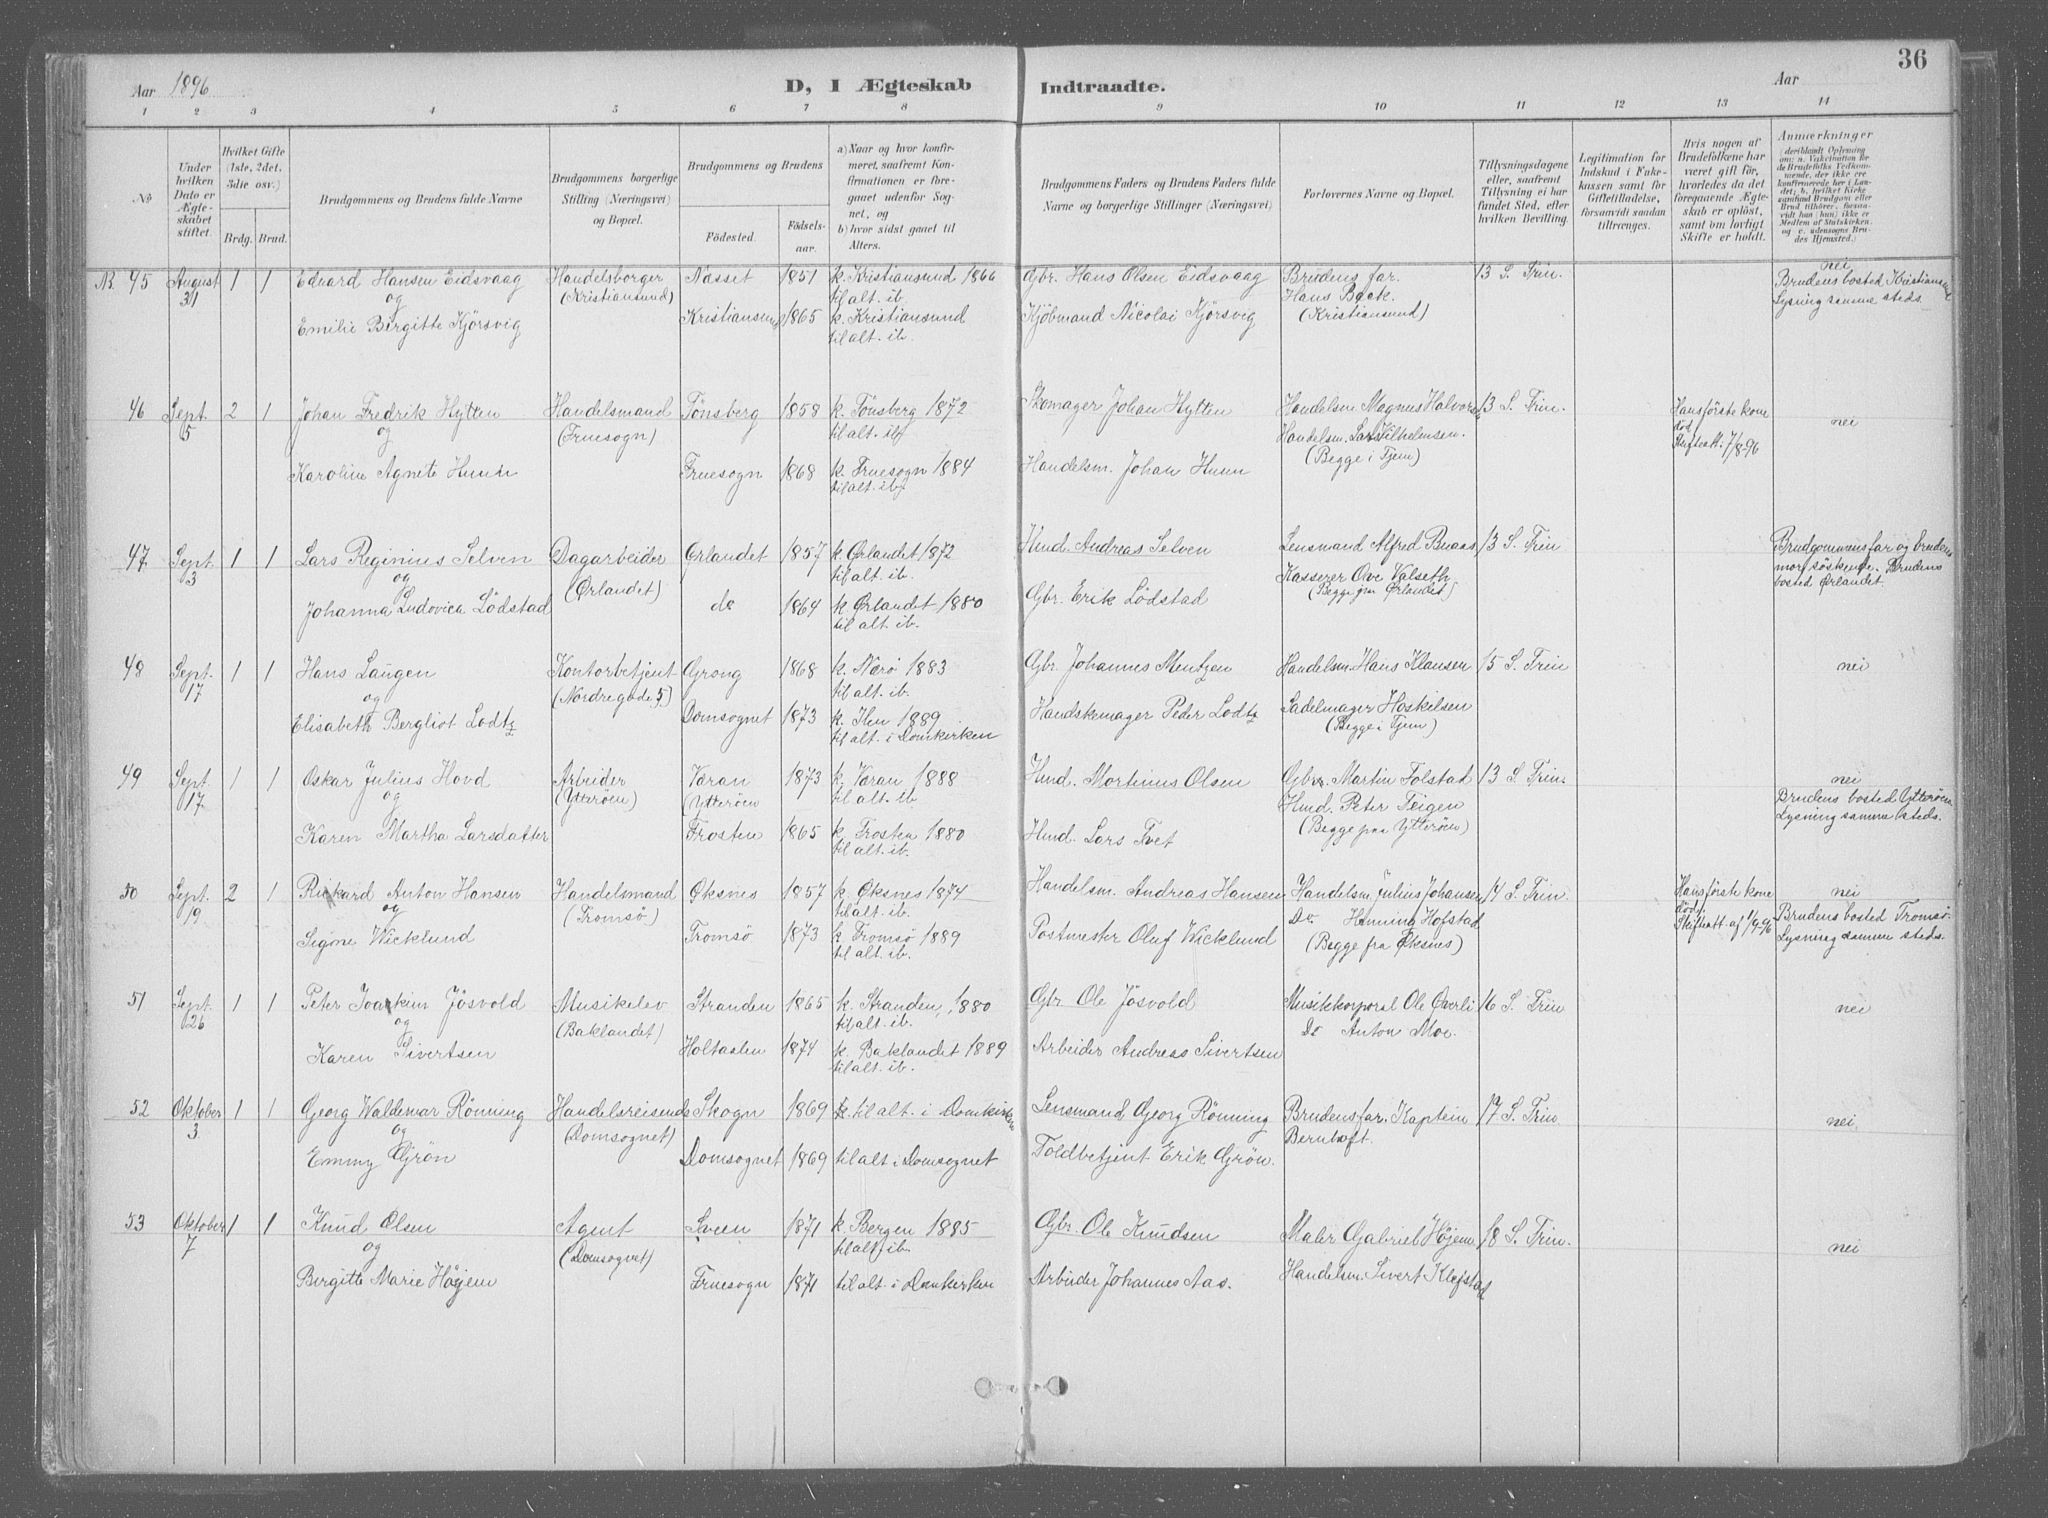 36
Aar 1896 D, I Ægteskab Indtraadte. Aar
1 2 3 4 5 6 7 8 9 10 11 12 13 14
No
Under hvilken Dato er Ægteskabet stiftet.
Hvilket Gifte (1ste, 2det, 3die osv.)
Brdg. Brud.
Brudgommens og Brudens fulde Navne
Brudgommens borgerlige Stilling (Næringsvei) og Bopæl.
Brudgommens og Brudens
Fødested. Fødselsaar.
a) Naar og hvor konfirmeret, saafremt Konfirmationen er foregaaet udenfor Sognet, og
b) hvor sidst gaaet til Alters.
Brudgommens Faders og Brudens Faders fulde Navne og borgerlige Stillinger (Næringsvei)
Forlovernes Navne og Bopæl.
Tillysningsdagene eller, saafremt Tillysning ei har fundet Sted, efter hvilken Bevilling.
Legitimation for Indskud i Enkekassen samt for Giftetilladelse, forsaavidt saadan tiltrænges.
Hvis nogen af Brudefolkene har været gift før, hvorledes da det foregaaende Ægteskab er opløst, samt om lovligt Skifte er holdt.
Anmærkninger
45 August 31 1 1 Edvard Hansen Eidsvaag Handelsborger Nasset 1851 k. Kristiansund 1866 Gbr. Hans Olsen Eidsvaag Brudens far. 13 S. Trin. nei
og (Kristiansund) til alt. ib. Hans Backe. Brudens bosted Kristiansund
Emilie Birgitte Kjörsvig Kristiansund 1865 k. Kristiansund Kjöbmand Nicolai Kjörsvig (Kristiansund) Lysning samme steds.
til alt. ib.
46 Sept. 5 2 1 Johan Fredrik Hytten Handelsmand Tönsberg 1858 k. Tönsberg 1872 Skomager Johan Hytten Handelsm. Magnus Halvorsen 13 S. Trin. Hans første kone nei
og (Fruesogn) til alt. ib. Handelsm. Lars Vilhelmsen. død
Karoline Agnete Hunn Fruesogn 1868 k. Fruesogn 1884 Handelsm. Johan Hunn (Begge i Tjem) Skifteatt. 7/8-96
til alt. ib.
47 Sept. 3 1 1 Lars Reginius Selven Dagarbeider Ørlandet 1857 k. Ørlandet 1872 Hmd. Andreas Selven Lensmand Alfred Buaas 13 S. Trin Brudgommens far og brudens
og (Ørlandet) til alt. ib. Kasserer Ove Valseth mor søskende. Brudens
Johanna Ludovica Lödstad do 1864 k. Ørlandet 1880 Gbr. Erik Lödstad (Begge fra Ørlandet) bosted Ørlandet.
til alt. ib.
48 Sept. 17 1 1 Hans Laugen Kontorbetjent Grong 1868 k. Nærö 1883 Gbr. Johannes Mentzen Handelsm. Hans Klausen 15 S. Trin nei
og (Nordregade 5) til alt. ib. Sadelmager Hoskilsen
Elisabeth Bergliot Lodtz Domsognet 1873 k. Ilen 1889 Handskemager Peder Lodtz (Begge i Tjem)
til alt. i Domkirken
49 Sept. 17 1 1 Oskar Julius Hovd Arbeider Varan 1873 k. Varan 1888 Hmd. Mortinus Olsen Gbr. Martin Tolstad 13 S. Trin. nei
og (Ytterøen) (Ytterøen til alt. ib. Hmd. Peter Teigen Brudens bosted Ytterøen
Karen Martha Larsdatter Frosten 1865 k. Frosten 1880 Hmd. Lars Tvet (Begge fra Ytterøen) Lysning samme steds.
til alt. ib.
50 Sept. 19 2 1 Rickard Anton Hansen Handelsmand Øksnes 1857 k. Øksnes 1874 Handelsm. Andreas Hansen Handelsm. Julius Johansen 14 S. Trin. Hans første kone nei
og (Tromsø) til alt. ib. Do Henning Hofstad død Brudens bosted Tromsø.
Signe Wicklund Tromsö 1873 k. Tromsö 1889 Postmester Oluf Wicklund (Begge fra Øksnes) Skifteatt. af 1/9-96 Lysning samme steds.
til alt. ib.
51 Sept. 26 1 1 Peter Joakim Jösvold Musikelev Stranden 1865 k. Stranden, 1880 Gbr. Ole Jösvold Musikkorporal Ole Överli 16 S. Trin nei
og (Baklandet) til alt. ib. Do Anton Moe.
Karen Sivertsen Holtaalen 1874 k. Baklandet 1889 Arbeider Andreas Sivertsen
til alt. ib.
52 Oktober 3 1 1 Georg Waldemar Rönning Handelsreisende Skogn 1869 til alt. i Domkirken Lensmand Georg Rönning Brudens far. Kaptein 17 S. Trin nei
og (Domsognet) Bernhoft.
Emmy Grön Domsognet 1869 til alt i Domsognet Toldbetjent Erik Grön.
53 Oktober 7 1 1 Knud Olsen Agent Sveen 1871 k. Bergen 1885 Gbr. Ole Knudsen Maler Gabriel Höjem 18 S. Trin. nei
og (Domsognet) til alt. ib.
Birgitte Marie Höjem Fruesogn 1871 til alt. i Domkirken Arbeider Johannes Aas. Handelsm. Sivert Klefstad